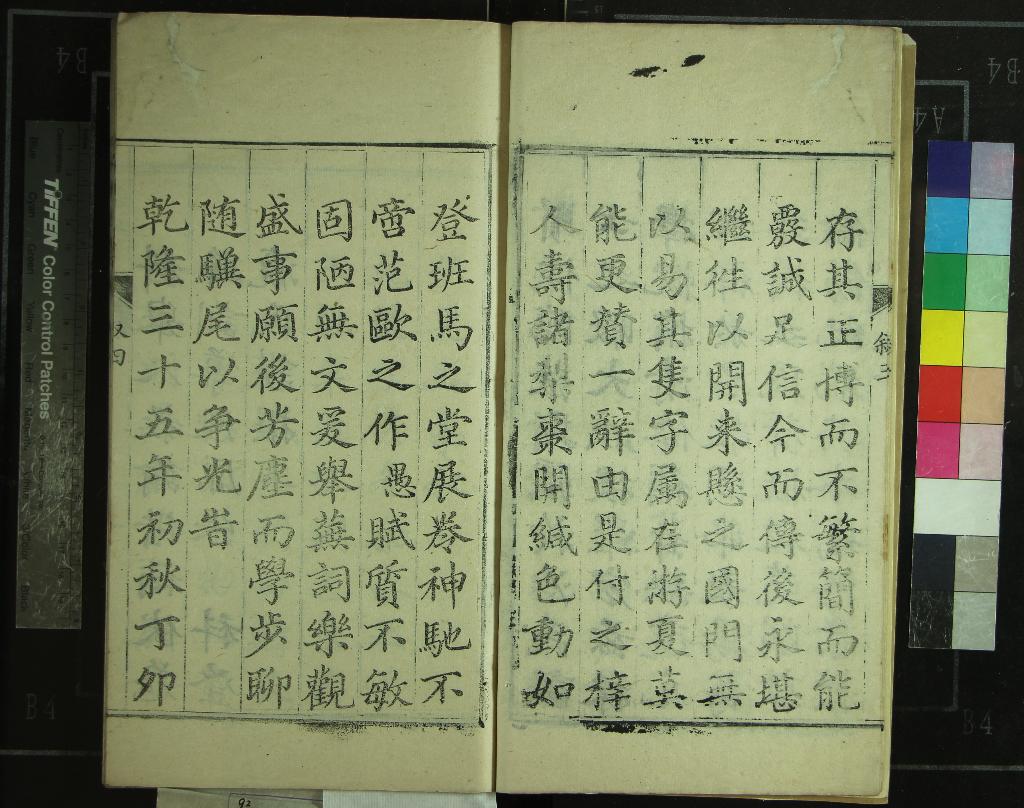 存其正博而不繁簡而能
覈誠足信今而傳後永堪
繼徃以開来懸之國門無
以易其隻字属在游夏莫
能更贊一辭由是付之梓
人壽諸梨棗開緘色動如
叙三
登班馬之堂展卷神馳不
啻范歐之作愚賦質不敏
固陋無文爰舉蕪詞樂觀
盛事願後芳塵而學步聊
随驥尾以争光旹
乾隆三十五年初秋丁卯
TIFFEN Color Control Patches
B4
B4
A4
B4
B4
92